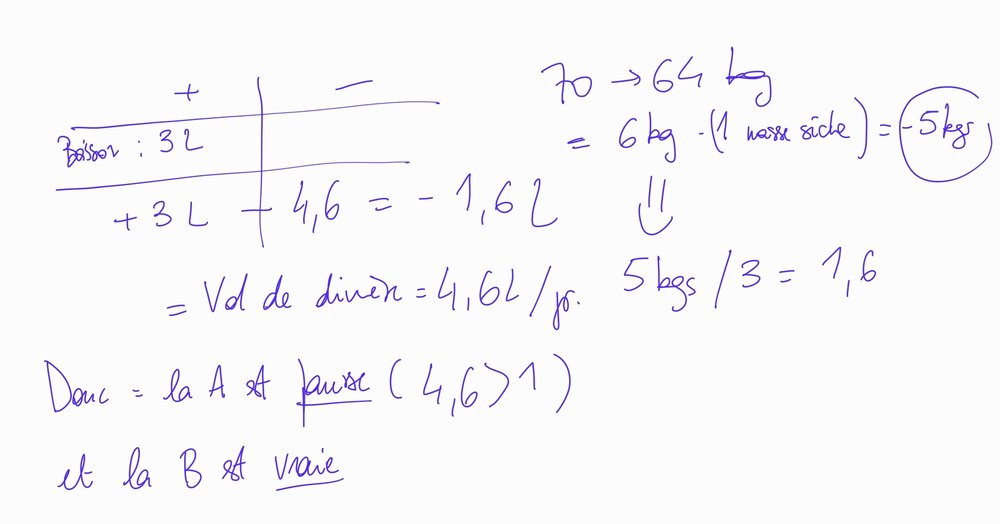 + -
Boisson : 3L
+ 3 L - 4,6 = - 1,6 L
= Vol de diurèse = 4,6L/jr.
Donc = la A est fausse ( 4,6 > 1 )
et la B est vraie
70 → 64 kg
= 6 kg - (1 masse sèche) = -5kgs
5 kgs / 3 = 1,6